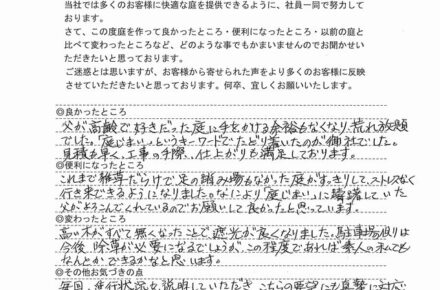 当社では多くのお客様に快適な庭を提供できるように、社員一同で努力して
おります。
さて、この度庭を作って良かったところ・便利になったところ・以前の庭と
比べて変わったところなど、どのような事でもかまいませんのでお聞かせい
ただきたいと思っております。
ご迷惑とは思いますが、お客様から寄せられた声をより多くのお客様に反映
させていただきたいと思っております。何卒、宜しくお願いいたします。
◎良かったところ
父が高齢で好きだった庭に手をかける余裕もなくなり荒れ放題
でした。"庭じまい"というキーワードでたどり着いたのが御社でした。
見積も早く、工事の手際、仕上がりも満足しております。
◎便利になったところ
これまで雑草だらけで足の踏み場もなかった庭がすっきりして、ストレスなく
行き来できるようになりました。なにより「庭じまい」に躊躇していた
父がよろこんでくれているのでお願いして良かったと思っています。
◎変わったところ
高い木がすべて無くなったことで遮光が良くなりました。駐車場周りは
今後除草が必要になるでしょうが、この程度であれば素人の私でも
なんとかできるかなと思います。
◎その他お気づきの点
毎回、進行状況を説明していただき、こちらの要望にも真摯に対応